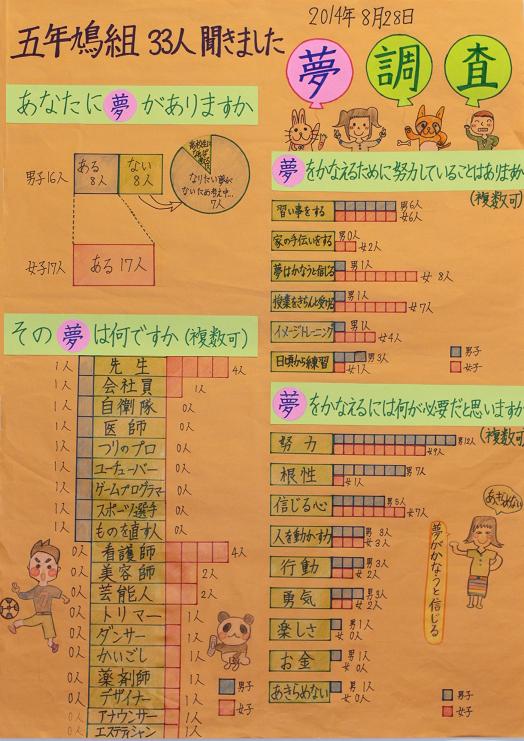 2014年8月28日
五年鳩組 33人聞きました
夢調査
あなたに夢がありますか
男子16人
ある 8人
ない 8人
なりたい夢がないため考え中… 7人
女子17人
ある17人
その夢は何ですか(複数可)
1人 先生 4人
1人 会社員 1人
1人 自衛隊 0人
1人 医師 0人
1人 つりのプロ 0人
1人 ユーチューバー 0人
1人 ゲームプログラマー 0人
1人 スポーツ選手 0人
1人 ものを直す人 0人
0人 看護師 4人
0人 美容師 2人
0人 芸能人 2人
0人 トリマー 1人
0人 ダンサー 1人
0人 かいごし 1人
0人 薬剤師 1人
0人 デザイナー 1人
0人 アナウンサー 1人
0人 エステティシャン 1人
男子
女子
夢をかなえるために努力していることはありますか
(複数可)
習い事をする 男6人 女6人
家の手伝いをする 男0人 女2人
夢はかなうと信じる 男1人 女8人
授業をきちんと受ける 男1人 女7人
イメージトレーニング 男1人 女4人
日頃から練習 男3人 女1人
男子
女子
夢をかなえるには何が必要だと思いますか
(複数可)
努力 男12人 女9人
根性 男7人 女1人
信じる心 男5人 女7人
人を動かす力 男3人 女3人
行動 男3人 女2人
勇気 男3人 女2人
楽しさ 男1人 女0人
お金 男1人 女0人
あきらめない 男1人 女0人
あきらめない
夢がかなうと信じる
男子
女子